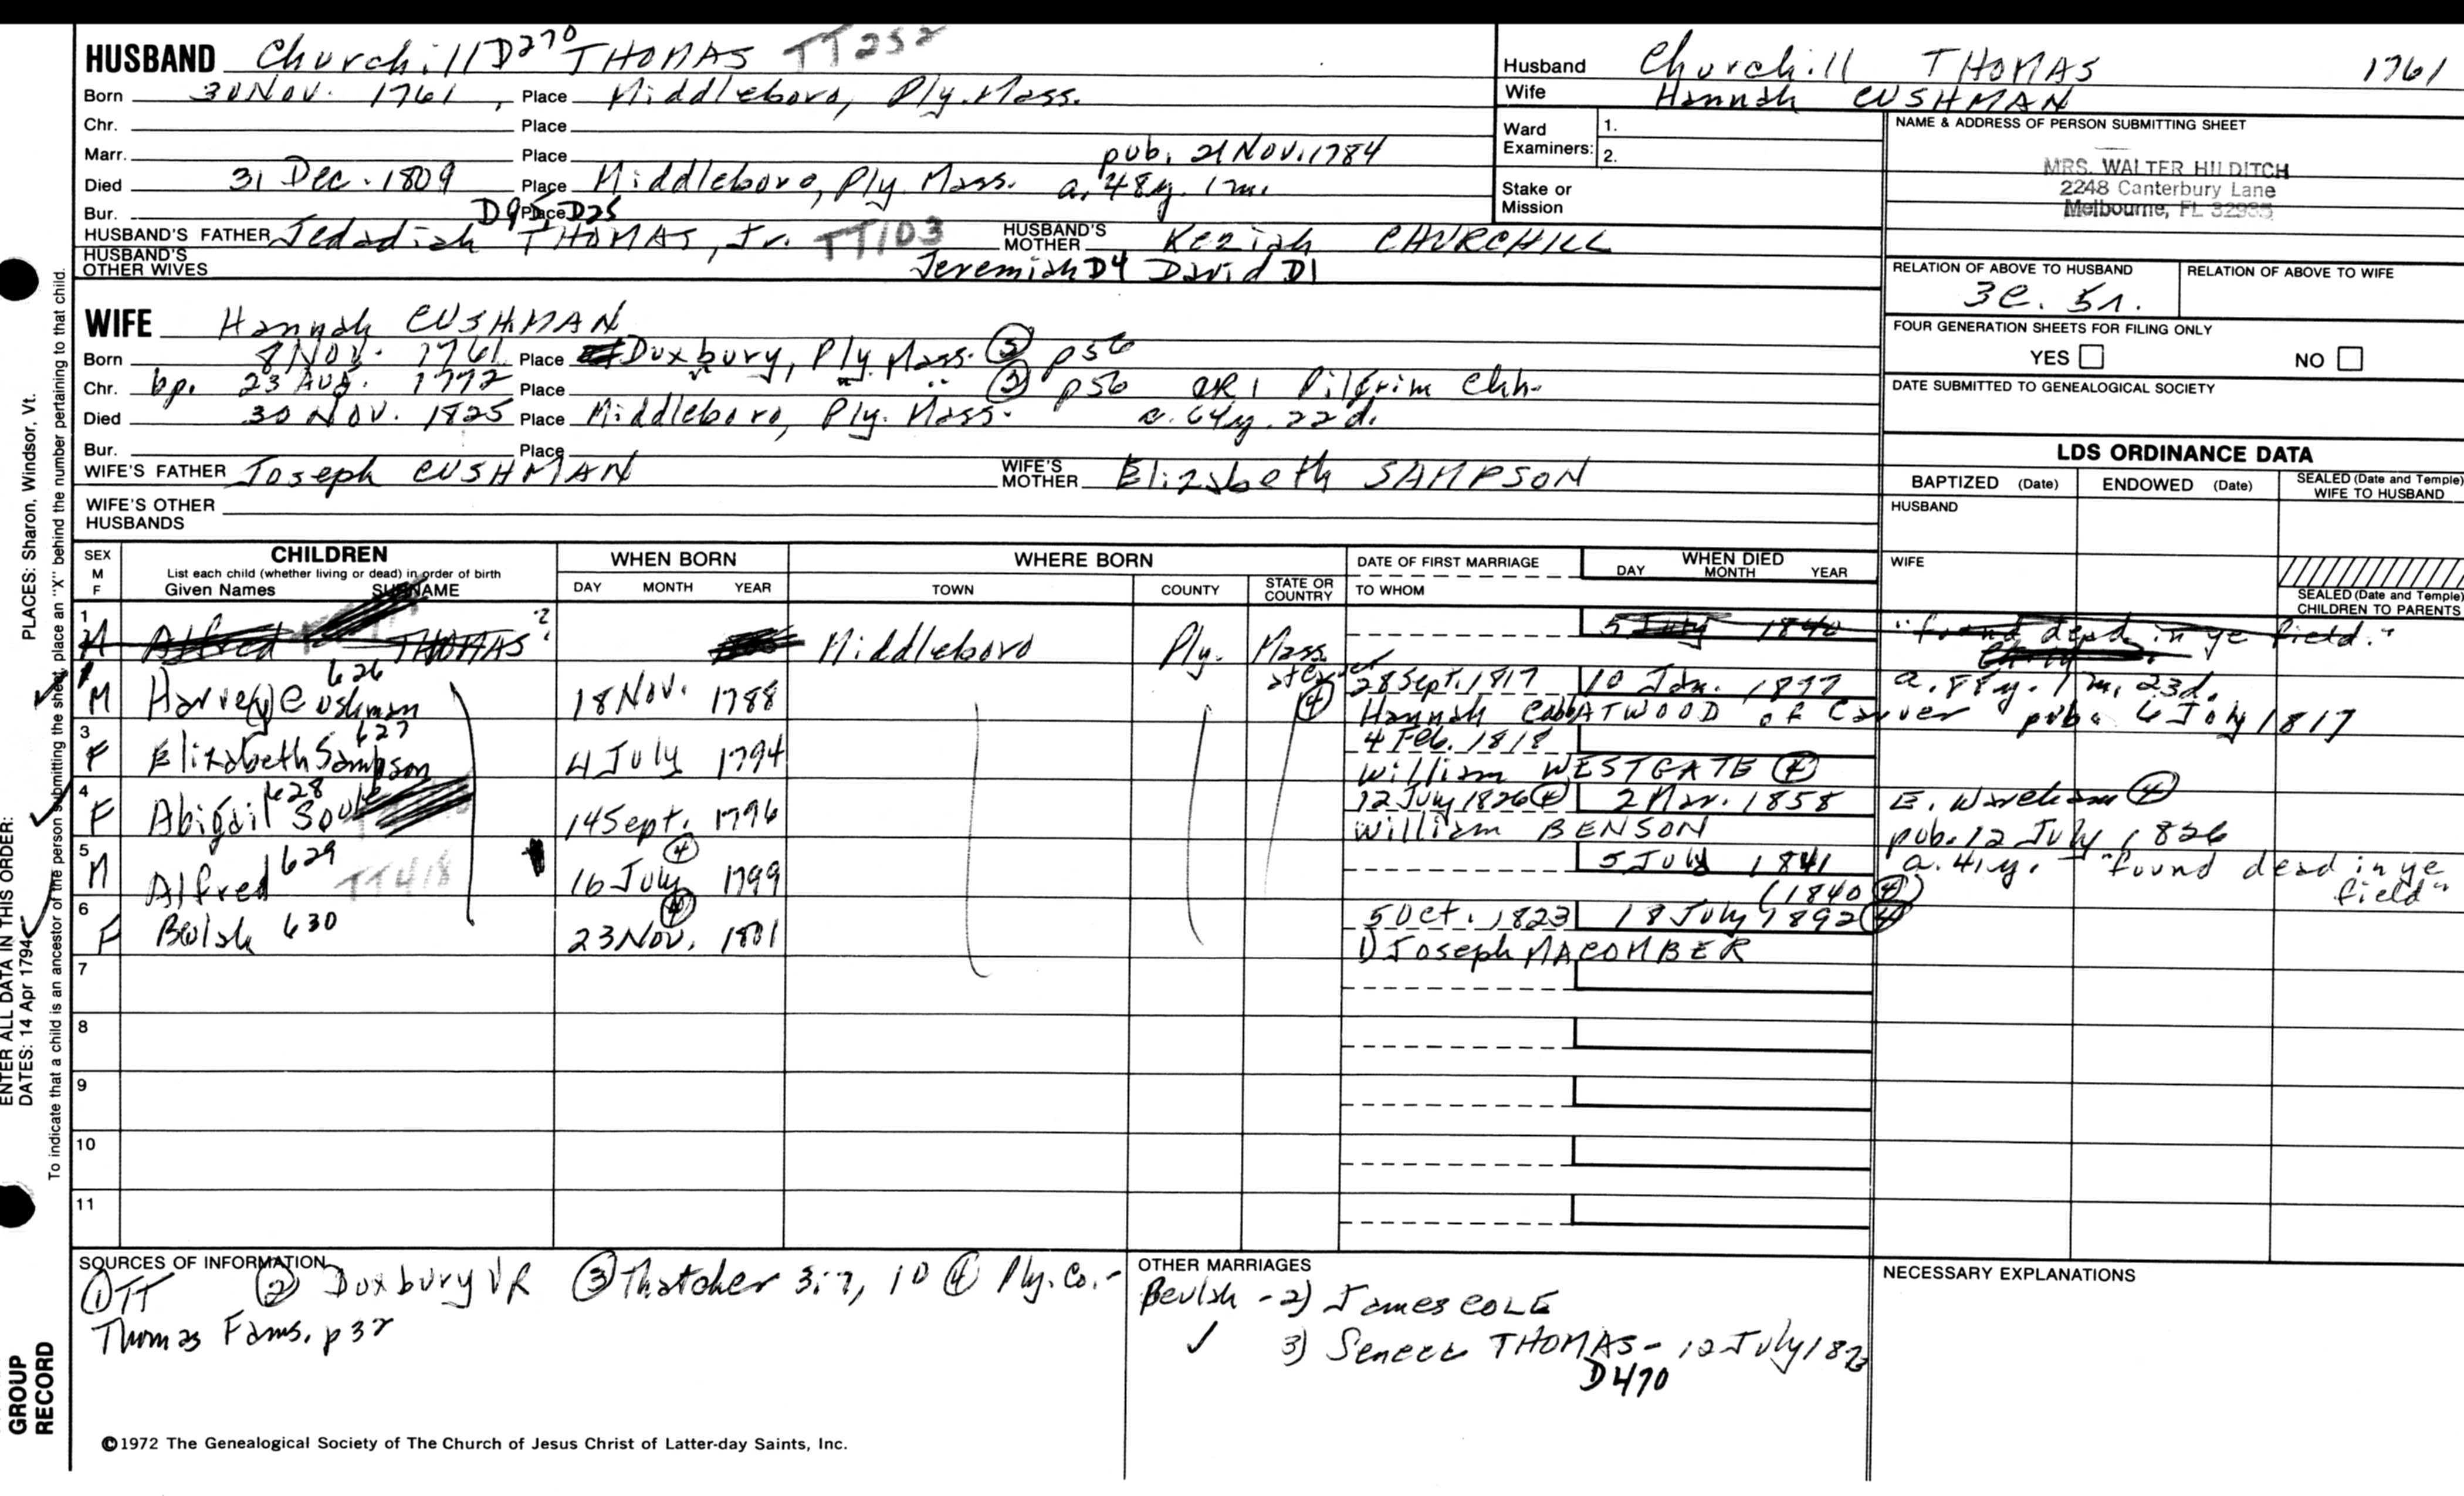 HUSBAND Churchill D270 THOMAS TT252
Born 30 Nov. 1761, Place Middleboro, Ply. Mass.
Chr. Place
Marr. Place pub. 21 Nov. 1784
Died 31 Dec. 1809 Place Middleboro, Ply. Mass. a. 48y. 1m.
Bur. Place D95, D25
HUSBAND'S FATHER Jedadiah THOMAS, Jr. TT103 HUSBAND'S MOTHER Keziah CHURCHILL
HUSBAND'S OTHER WIVES Jeremiah D4 David D1
Husband Churchill THOMAS 1761
Wife Hannah CUSHMAN
Ward Examiners: 1.
2.
Stake or Mission
NAME & ADDRESS OF PERSON SUBMITTING SHEET
MRS. WALTER HILDITCH
2248 Canterbury Lane
Melbourne, FL 32935
RELATION OF ABOVE TO HUSBAND
3c. 5r.
RELATION OF ABOVE TO WIFE
FOUR GENERATION SHEETS FOR FILING ONLY
YES NO
DATE SUBMITTED TO GENEALOGICAL SOCIETY
WIFE Hannah CUSHMAN
Born 8 Nov. 1761 Place Duxbury, Ply. Mass. p56
Chr. bp. 23 Aug. 1772 Place p56 CR1 Pilgrim Chh.
Died 30 Nov. 1825 Place Middleboro, Ply. Mass. a. 64y. 22d.
Bur. Place
WIFE'S FATHER Joseph CUSHMAN WIFE'S MOTHER Elizabeth SAMPSON
WIFE'S OTHER HUSBANDS
LDS ORDINANCE DATA
BAPTIZED (Date) ENDOWED (Date) SEALED (Date and Temple) WIFE TO HUSBAND
HUSBAND
WIFE
SEALED (Date and Temple) CHILDREN TO PARENTS
SEX M F
CHILDREN
List each child (whether living or dead) in order of birth
Given Names SURNAME
WHEN BORN
DAY MONTH YEAR
WHERE BORN
TOWN COUNTY STATE OR COUNTRY
DATE OF FIRST MARRIAGE
TO WHOM
WHEN DIED
DAY MONTH YEAR
1 M Alfred THOMAS Middleboro Ply. Mass. 5 July 1840 "found dead in ye field."
M Harvey Cushman 626 18 Nov. 1788 ④ 28 Sept. 1817 10 Jan. 1877 a. 88y. 1m. 23d.
Hannah Cobb ATWOOD of Carver pub. 6 July 1817
3 F Elizabeth Sampson 627 4 July 1794 4 Feb. 1818
William WESTGATE ④
4 F Abigail Soule 628 14 Sept. 1796 12 July 1826 ④ 2 Mar. 1858 E. Wareham ④
William BENSON pub. 12 July 1826
5 M Alfred 629 TT418 16 July ④ 1799 5 July 1841 a. 41y. "found dead in ye field"
(1840 ④)
6 F Beulah 630 23 Nov. ④ 1801 5 Oct. 1823 18 July 1892 ④
1) Joseph MACOMBER
7
8
9
10
11
SOURCES OF INFORMATION
① TT ② Duxbury VR ③ Thatcher 3:7, 10 ④ Ply. Co.-
Thomas Fams. p32
OTHER MARRIAGES
Beulah - 2) James COLE
✓ 3) Seneca THOMAS - 12 July 187
D470
NECESSARY EXPLANATIONS
©1972 The Genealogical Society of The Church of Jesus Christ of Latter-day Saints, Inc.
GROUP RECORD
ENTER ALL DATA IN THIS ORDER:
DATES: 14 Apr 1794
PLACES: Sharon, Windsor, Vt.
To indicate that a child is an ancestor of the person submitting the sheet, place an "X" behind the number pertaining to that child.